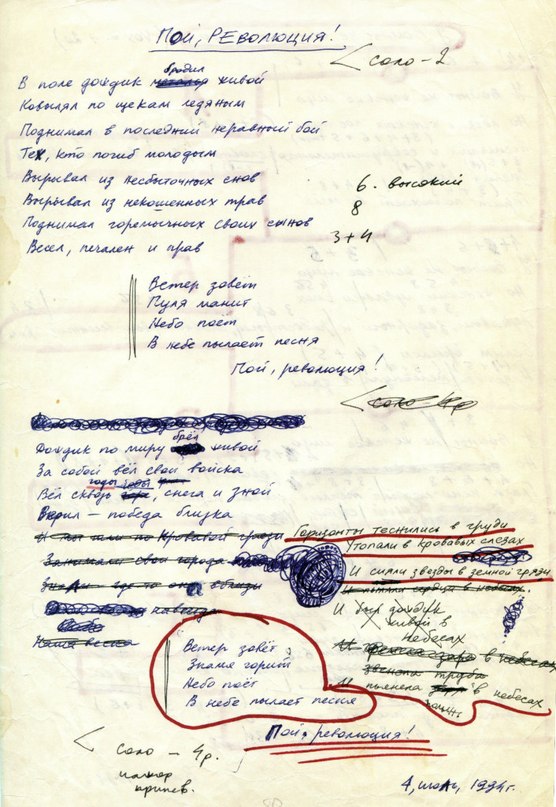 Пой, РЕВОЛЮЦИЯ!
< соло - 2
бродил
В поле дождик живой
Ковылял по щекам ледяным
Поднимал в последний неравный бой
Тех, кто погиб молодым
Вырывал из несбыточных снов
6. высокий
Вырывал из некошенных трав
8
Поднимал горемычных своих сынов
3+4
Весел, печален и прав
Ветер зовёт
Пуля манит
Небо поёт
В небе пылает песня
Пой, революция!
< соло 4р
брёл
Дождик по миру живой
За собой вёл свои войска
годы
Вёл сквозь , снега и зной
Верил — победа близка
И шли по кровавой грязи
Горизонты теснились в груди
Утопали в кровавых слезах
Занимали свои города
И сияли звёзды в земной грязи
где то они вблизи
И пьяняла сердца в небесах.
И был дождик
живой в
небесах
Наша весна
И в небесах
звенела труба
Ветер зовёт
Знамя горит
И пьянела в небесах
Небо поёт
В небе пылает песня
Пой, революция!
< соло — 4р.
припев.
4, июль, 1994г.